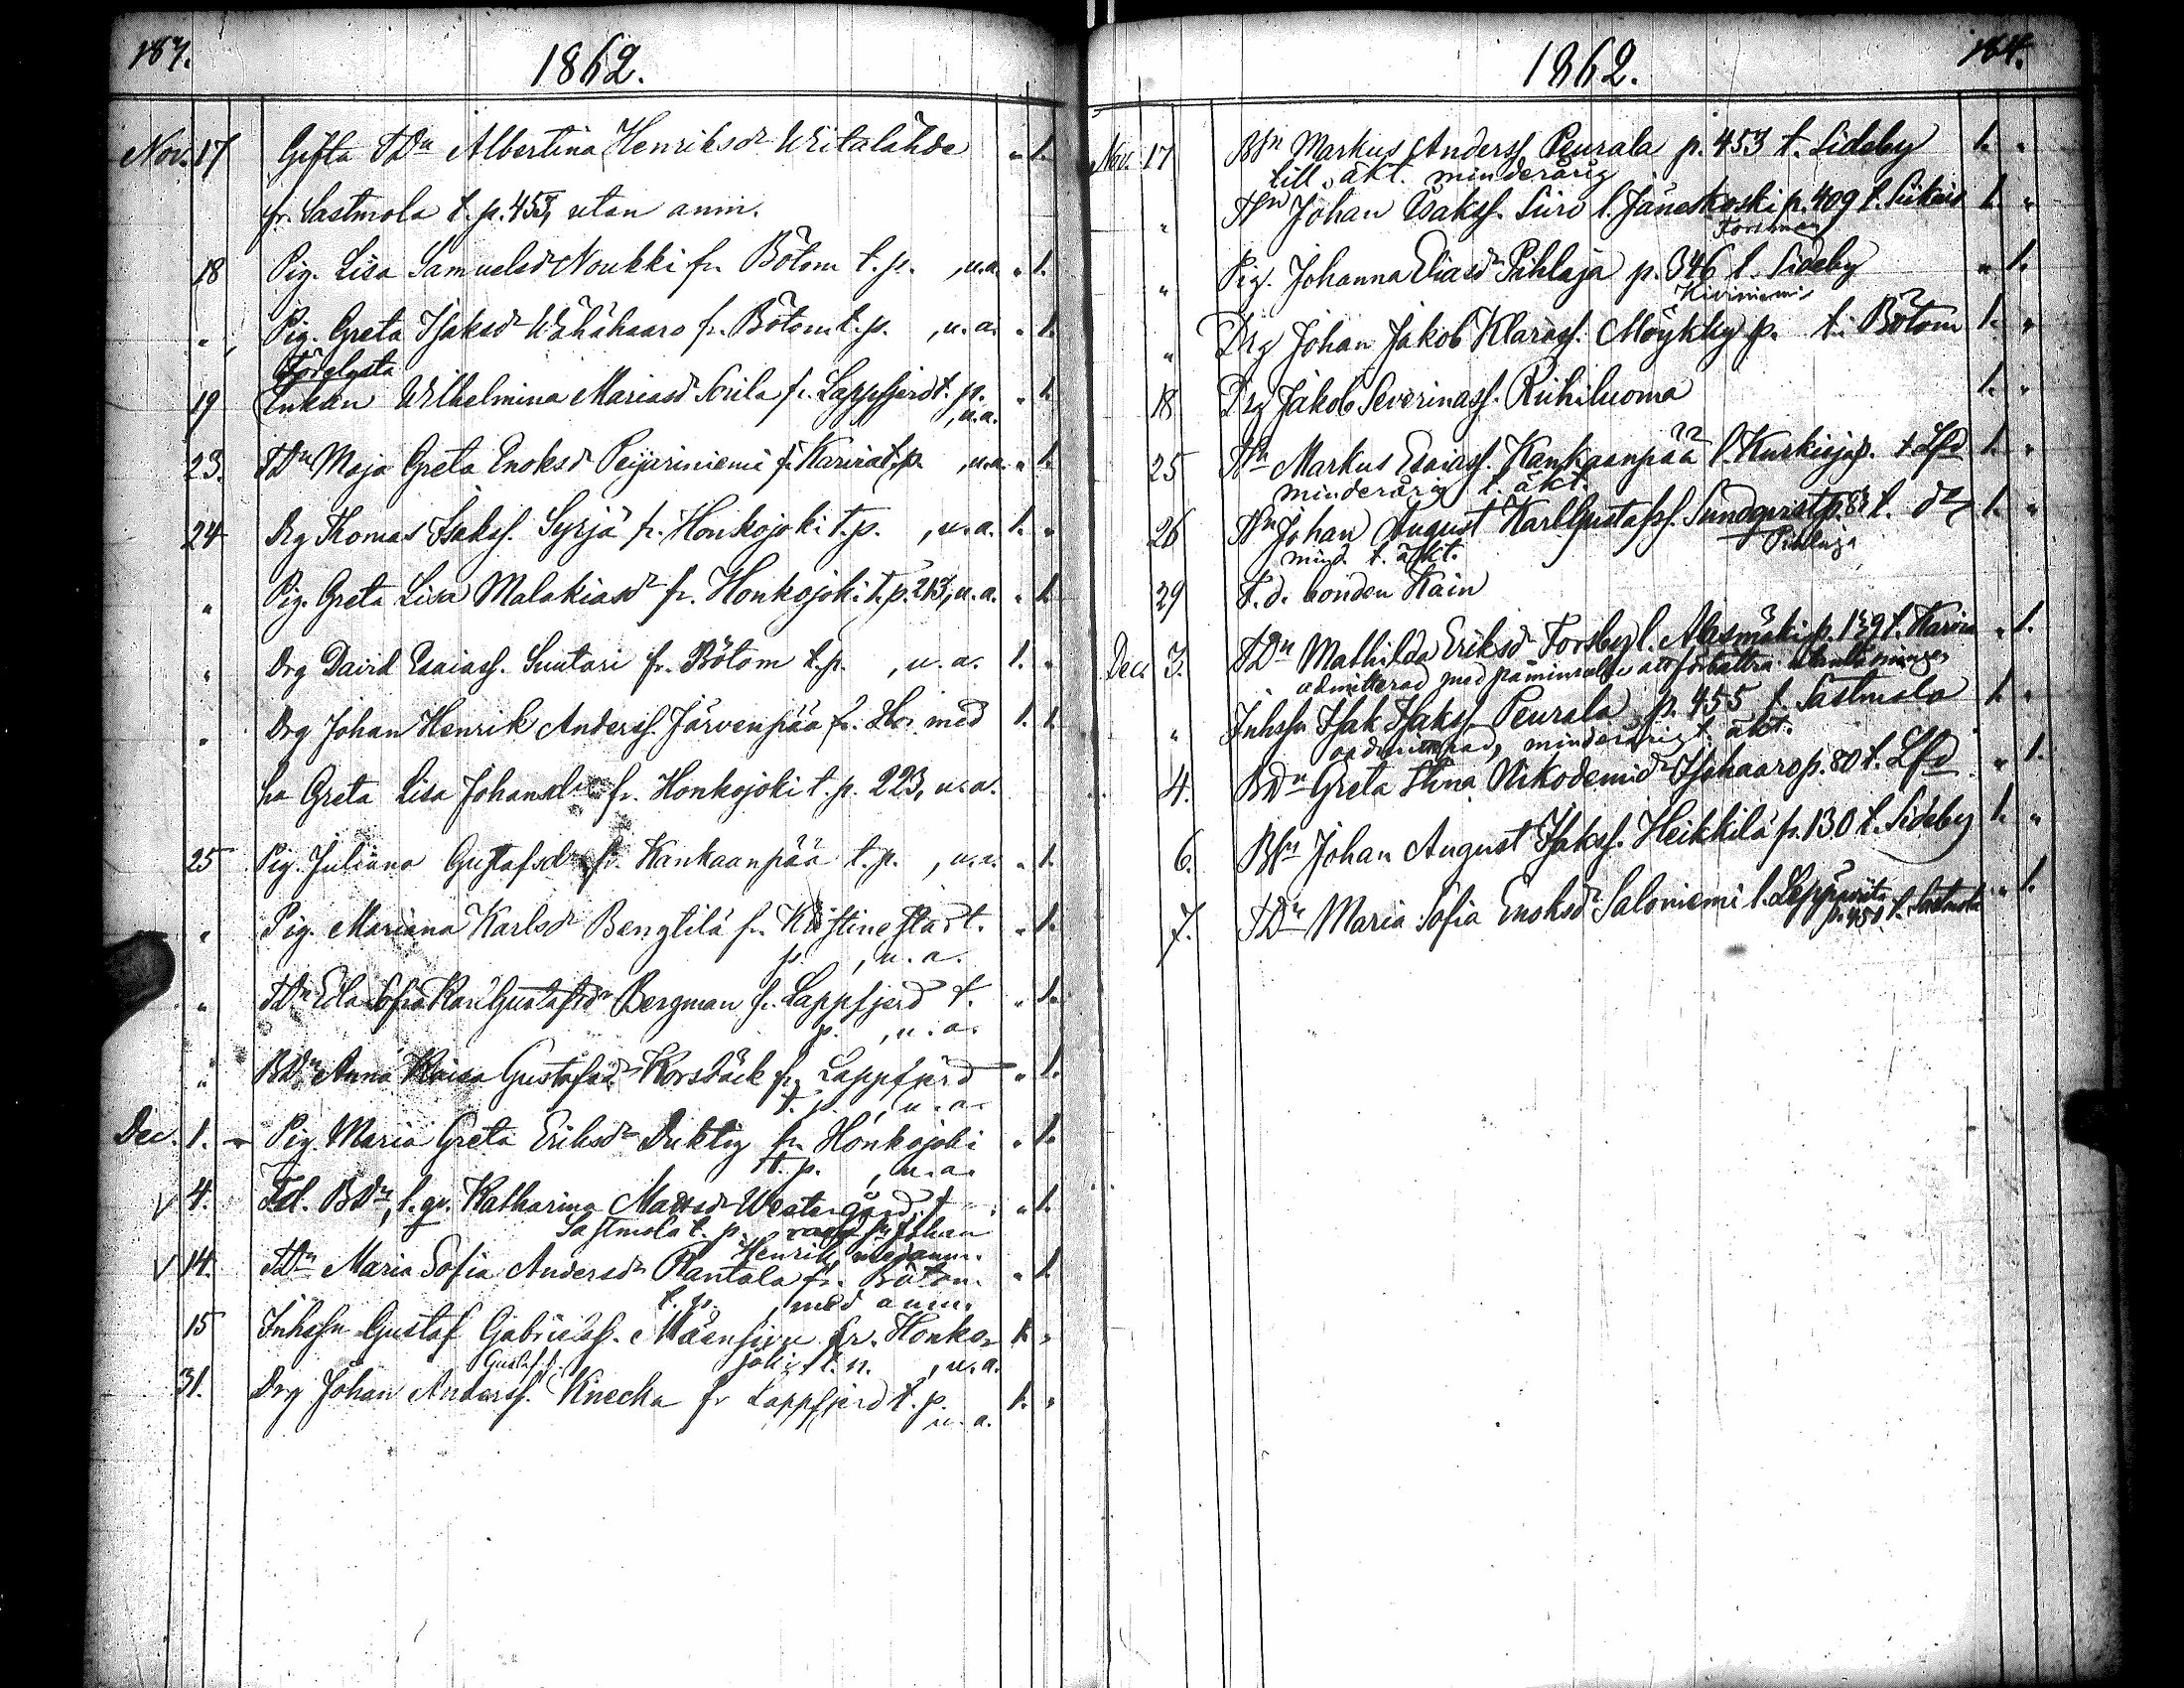 187.
1862.
Nov. 17 Gifta TDn Albertina Henriksdr Witalähde " 1.
fr. Sastmola t. p. 457, utan anm.
18 Pig. Lisa Samuelsdr Noukki fr. Bötom t. p. , u.a. " 1.
" Pig. Greta Isaksdr Wähähaaro fr. Bötom t. p. , u.a. " 1.
Förelgsta
19 Enkan Wilhelmina Mariasdr fr. Lappfjerd t. p. " 1.
, u.a.
23. TDn Maja Greta Enoksdr Peijariniemi fr. Karvia t. p. , u.a. " 1.
24 Drg Thomas Isakss. Syrjä fr. Honkojoki t. p. , u.a. 1. "
" Pig. Greta Lisa Malakiasdr fr. Honkojoki t. p. 213, u.a. " 1.
" Drg David Esaiass. Suutari fr. Bötom t. p. , u.a. 1. "
" Drg Johan Henrik Anderss. Järvenpää fr. med 1. 1.
Greta Lisa Johansdr fr. Honkojoki t. p. 223, u.a.
25 Pig. Juliana Gustafsdr fr. Kankaanpää t. p. , u.a. " 1.
" Pig. Mariana Karlsdr Bengtilä fr. Kristinestad t. " 1.
p. , u.a.
" TDn Edla Sofia Karl Gustafsdr Bergman fr. Lappfjerd t. " 1.
p. , u.a.
" BDn Anna Kaisa Gustafsdr Korsbäck fr. Lappfjerd " 1.
t. p. , u.a.
Dec. 1. Pig. Maria Greta Eriksdr Duktig fr. Honkojoki " 1.
t. p. , u.a.
√ 4. Fd. BDn, l. qv. Katharina Mattsdr Westergård, f " 1.
Sastmola t. p. Johan
Henrik, med anm.
√ 14. TDn Maria Sofia Andersdr Rantala fr. Bötom " 1.
t. p. , med anm.
15 Inhsn Gustaf Gabrielss. Mäensivu fr. Honko- 1. "
joki t. p. , u.a.
Gustafss.
31. Drg Johan Anderss. Knecka fr Lappfjerd t. p. 1. "
u.a.
1862.
184.
Nov. 17 BSn Markus Anderss. Peurala p. 453 t. Sideby 1. "
till äkt. minderårig
" TSn Johan Isakss. Siiro l. Jäneskoski p. 409 t. Siikais 1. "
Forsman
" Pig. Johanna Eliasdr Pihlaja p. 346 t. Sideby " 1.
Kiviniemi
" Drg Johan Jakob Klarass. Möykky p. t. Bötom 1. "
18 Drg Jakob Severinass. Riihiluoma 1. "
25 TSn Markus Esaiass. Kankaanpää l. Kurkisj p. 22 t. Lfd 1. "
minderårig t. äkt.
26 TSn Johan August Karl Gustafss. Sundqvist p. 83 t. do 1. "
mind. t. äkt. Pihlaja
29 F. d. bonden Kain
Dec. 3. TDn Mathilda Eriksdr Forsberg l. Alasmäki p. 129 t. Karvia " 1.
admitterad med påminnelse att förbättra utanläsningen
" Inhsn Isak Isakss. Peurala p. 455 t. Sastmola 1. "
oadmitterad, minderårig t. äkt.
4. BDn Greta Stina Nikodemidr Isohaaro p. 80 t. Lfd " 1.
6. BSn Johan August Isakss. Heikkilä p. 130 t. Sideby 1. "
7. TDn Maria Sofia Enoksdr Saloniemi l. Leppävita " 1.
p. 451 t. Sastmola